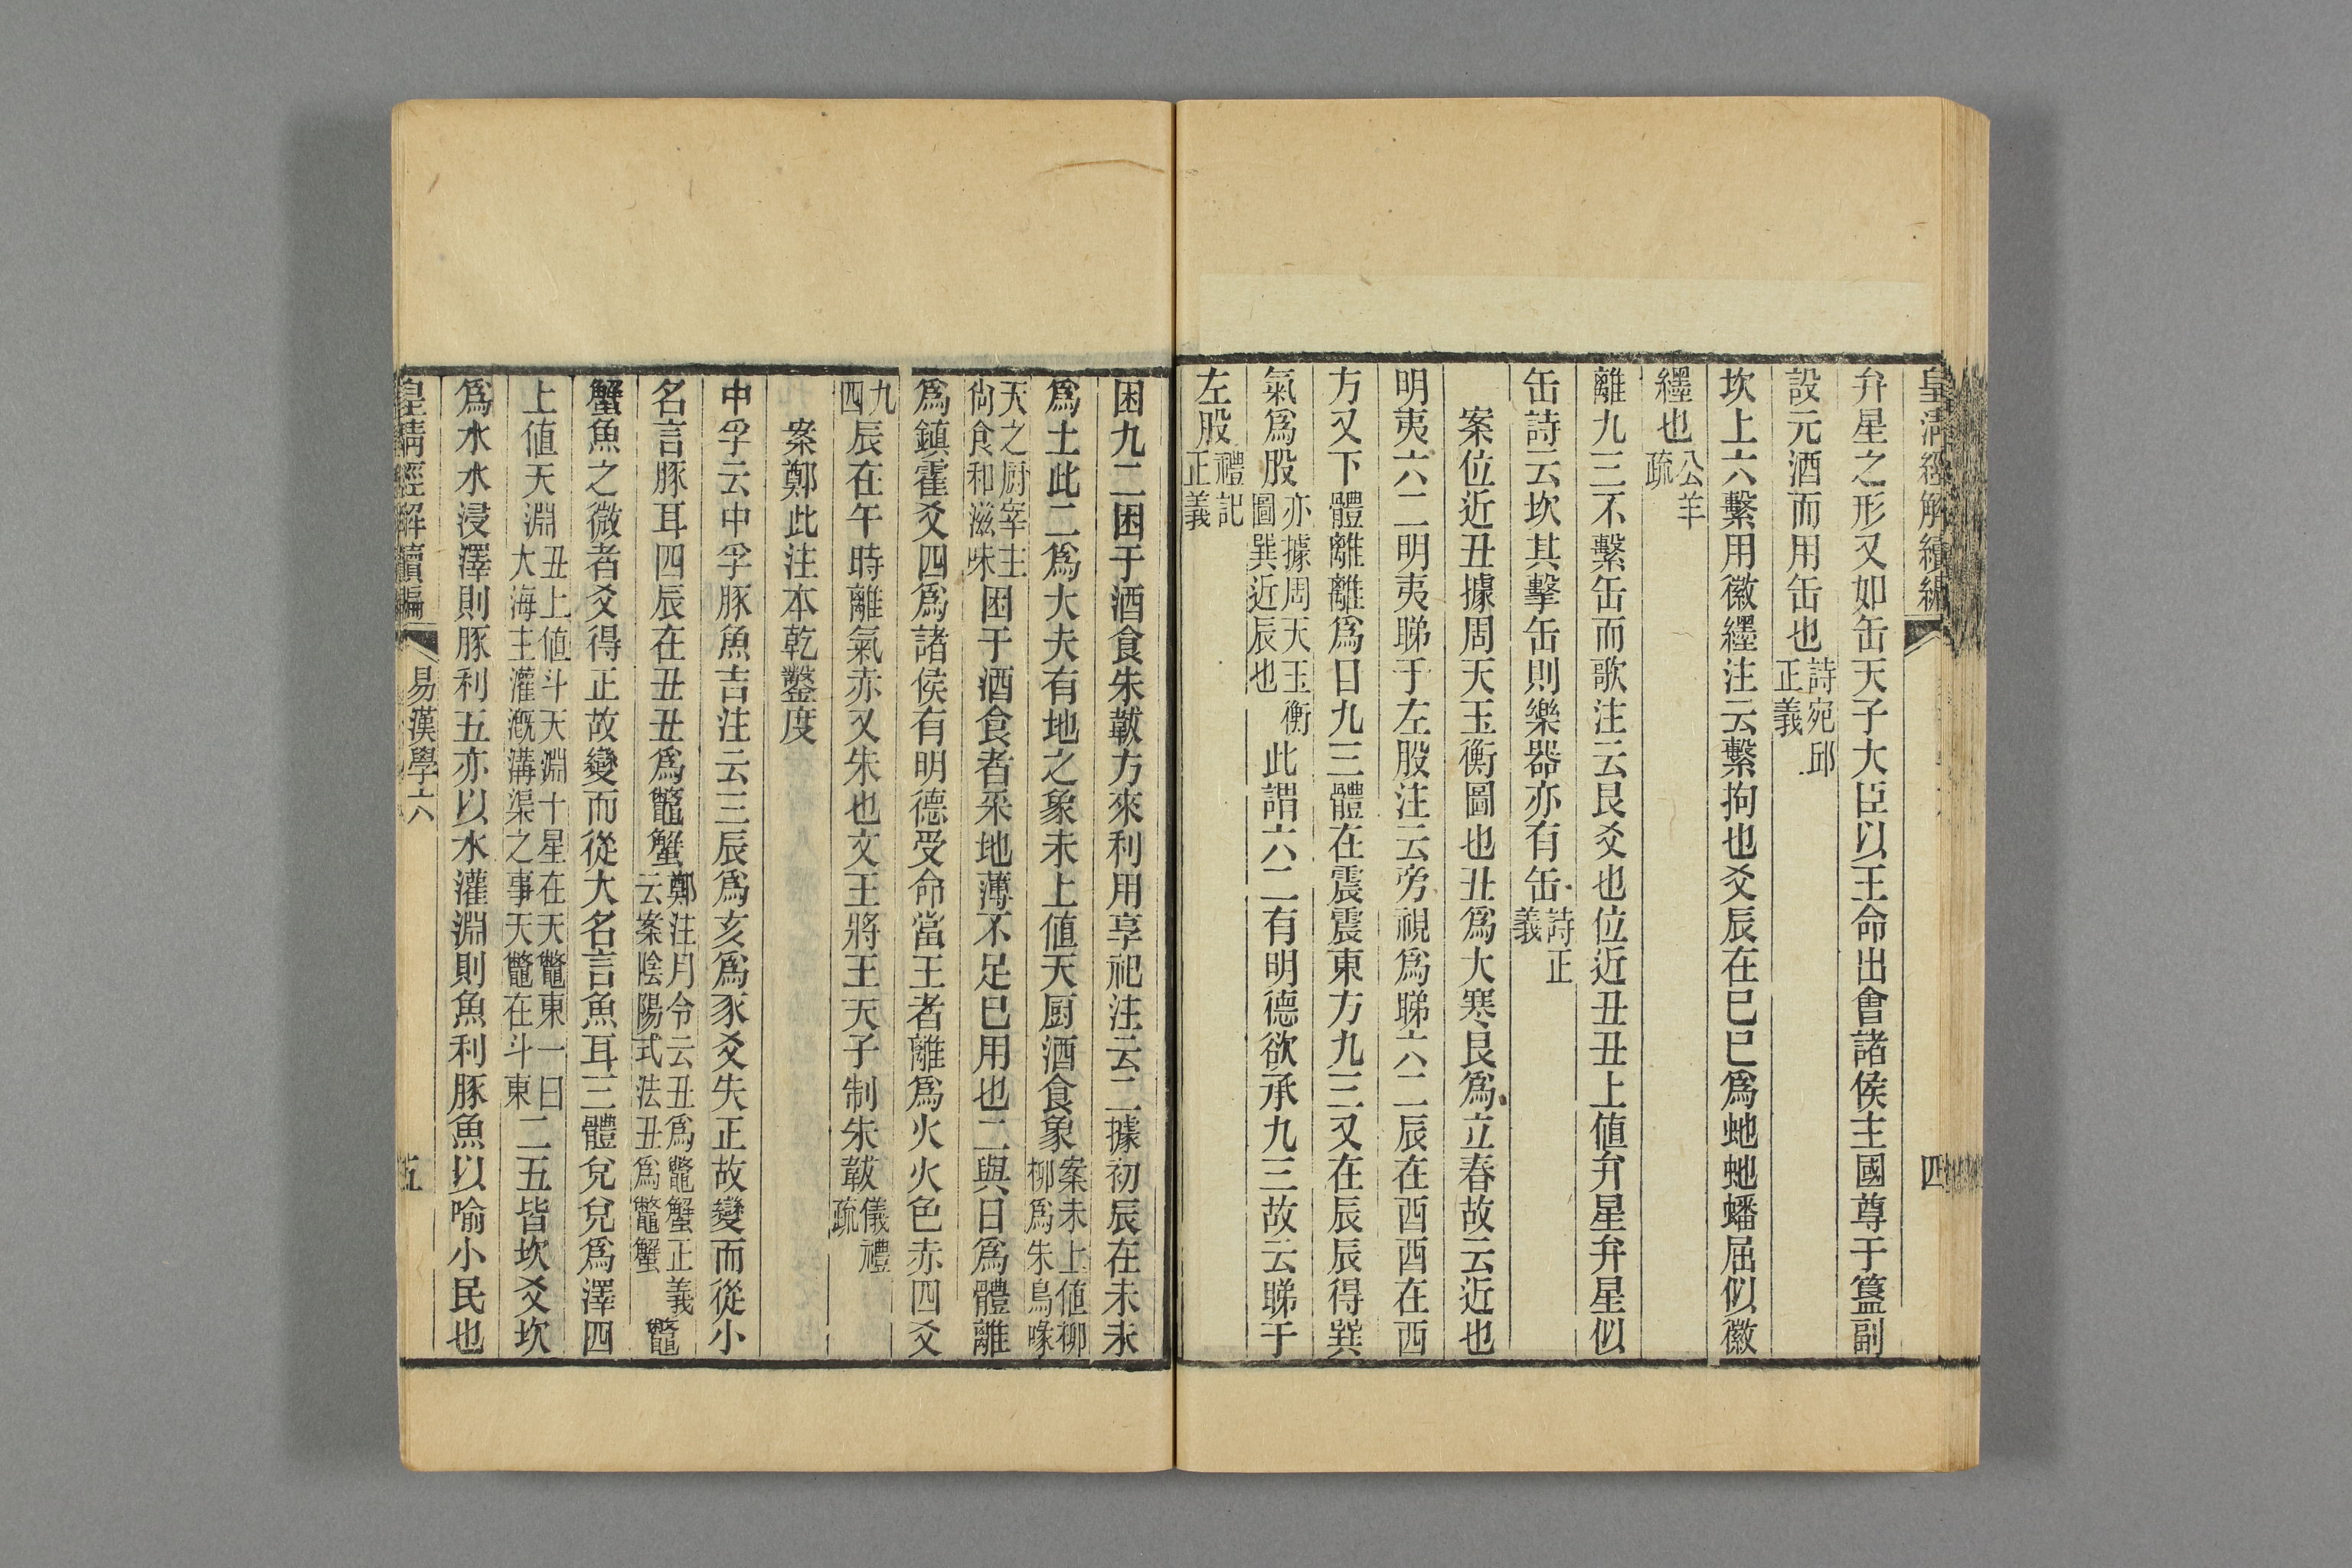 皇清經解續編
四
弁星之形又如缶天子大臣以王命出會諸侯主國尊于簋副
設元酒而用缶也詩宛邱正義
坎上六繫用徽纆注云繫拘也爻辰在巳巳爲虵虵蟠屈似徽
纆也公羊疏
離九三不繫缶而歌注云艮爻也位近丑丑上値弁星弁星似
缶詩云坎其擊缶則樂器亦有缶詩正義
案位近丑據周天玉衡圖也丑爲大寒艮爲立春故云近也
明夷六二明夷睇于左股注云旁視爲睇六二辰在酉酉在西
方又下體離離爲日九三體在震震東方九三又在辰辰得巽
氣爲股亦據周天玉衡圖巽近辰也此謂六二有明德欲承九三故云睇于
左股禮記正義
困九二困于酒食朱韍方來利用享祀注云二據初辰在未未
爲土此二爲大夫有地之象未上値天厨酒食象案未上値柳柳爲朱鳥喙
天之厨宰主尙食和滋味困于酒食者采地薄不足巳用也二與日爲體離
爲鎮霍爻四爲諸侯有明德受命當王者離爲火火色赤四爻
九四辰在午時離氣赤又朱也文王將王天子制朱韍儀禮疏
案鄭此注本乾鑿度
中孚云中孚豚魚吉注云三辰爲亥爲豕爻失正故變而從小
名言豚耳四辰在丑丑爲鼈蟹鄭注月令云丑爲鼈蟹正義云案陰陽式法丑爲鼈蟹鼈
蟹魚之微者爻得正故變而從大名言魚耳三體兌兌爲澤四
上値天淵丑上値斗天淵十星在天鼈東一曰大海主灌漑溝渠之事天鼈在斗東二五皆坎爻坎
爲水水浸澤則豚利五亦以水灌淵則魚利豚魚以喻小民也
皇清經解續編
易漢學六
五